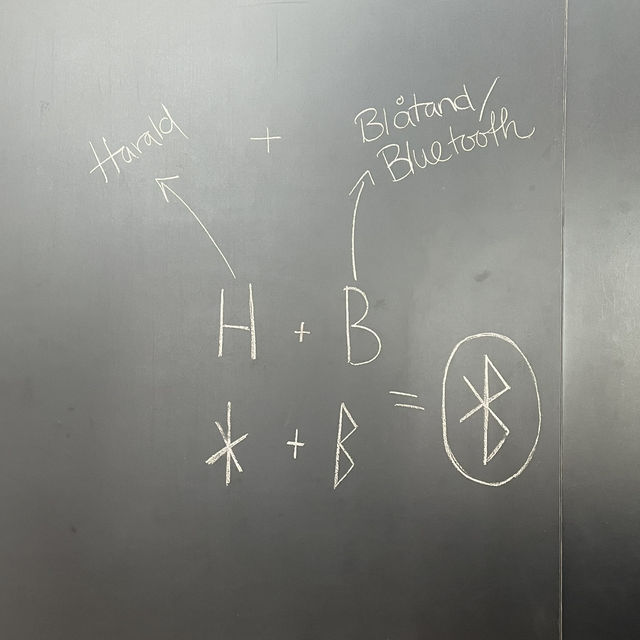 Harald + Blåtand/
Bluetooth
H + B
ᚼ + ᛒ =